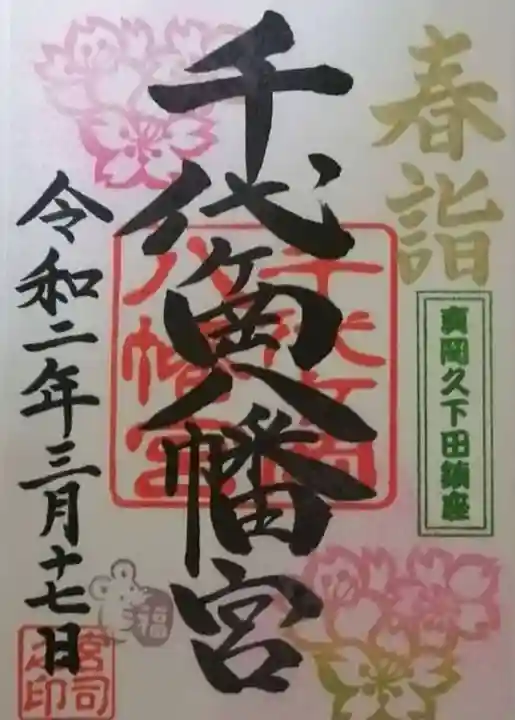 春詣
真岡久下田鎮座
千代ヶ岡八幡宮
千代ヶ岡八幡宮
令和二年三月十七日
福
宮司之印